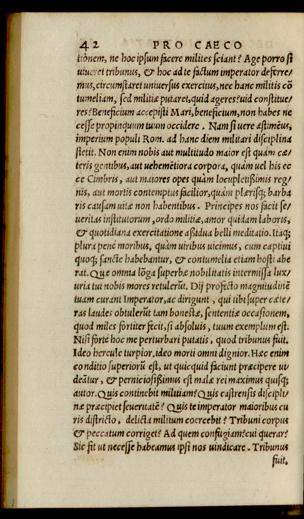 42 PRO CAECO
tionem, ne hoc ipsum facere milites sciant? Age porro si
uiueret tribunus, & hoc ad te factum imperator deferre/
mus, circumstaret uniuersus exercitus, nec hanc militis cō
tumeliam, sed militiæ putaret, quid ageres? uid constitue/
res? Beneficium accepisti Mari, beneficium, non habes ne
cesse propinquum tuum occidere. Nam si uere æstimeus,
imperium populi Rom. ad hanc diem militari disciplina
stetit. Non enim nobis aut multitudo maior est quàm cæ/
teris gentibus, aut uehemētiora corpora, quàm uel his ec
ce Cimbris, aut maiores opes quàm locupletissimis reg/
nis, aut mortis contemptus facilior, quàm plærisq; barba
ris causam uitæ non habentibus. Principes nos facit se/
ueritas institutorum, ordo militiæ, amor quidam laboris,
& quotidiana exercitatione assidua belli meditatio. Itaq;
plura penè moribus, quàm uiribus uicimus, cum captiui
quoq; sanctè habebantur, & contumelia etiam hosti abe
rat. Quæ omnia lōga superbæ nobilitatis intermissa lux/
uria tui nobis mores retulerūt. Dij profecto magnitudinē
tuam curant Imperator, ac dirigunt, qui tibi super cæte/
ras laudes obtulerūt tam honestæ, sententiæ occasionem,
quod miles fortiter fecit, si absoluis, tuum exemplum est.
Nisi fortè hoc me perturbari putatis, quod tribunus fuit.
Ideo hercule turpior, ideo morti omni dignior. Hæc enim
conditio superiorū est, ut quicquid faciunt præcipere ui/
deātur, & perniciosissimus est malæ rei maximus quisq;
autor. Quis continebit militiam? Quis castrensis discipli/
næ præcipiet seueritatē? Quis te imperator maioribus cu
ris districto, delicta militum coercebit? Tribuni corpus
& peccatum corriget? Ad quem confugiam? cui querar?
Sic fit ut necesse habeamus ipsi nos uindicare. Tribunus
fuit,